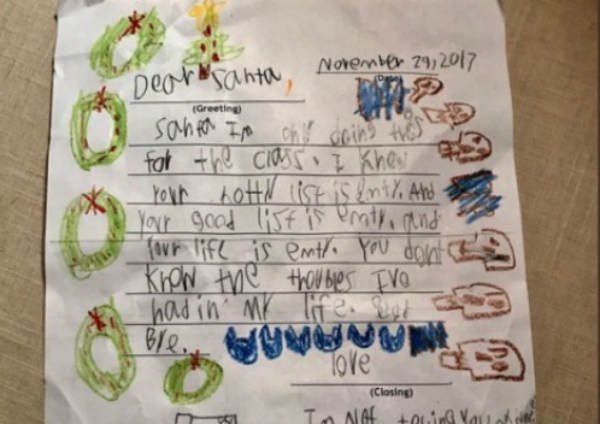 November 29, 2017
(Date)
Dear Santa,
(Greeting)
Santa I'm only doing this
for the class. I know
your notty list is emty. And
your good list is emty. and
your life is emty. You dont
know the troubles Ive
had in my life. Good
Bye.
love
(Closing)
I'm Not telling you